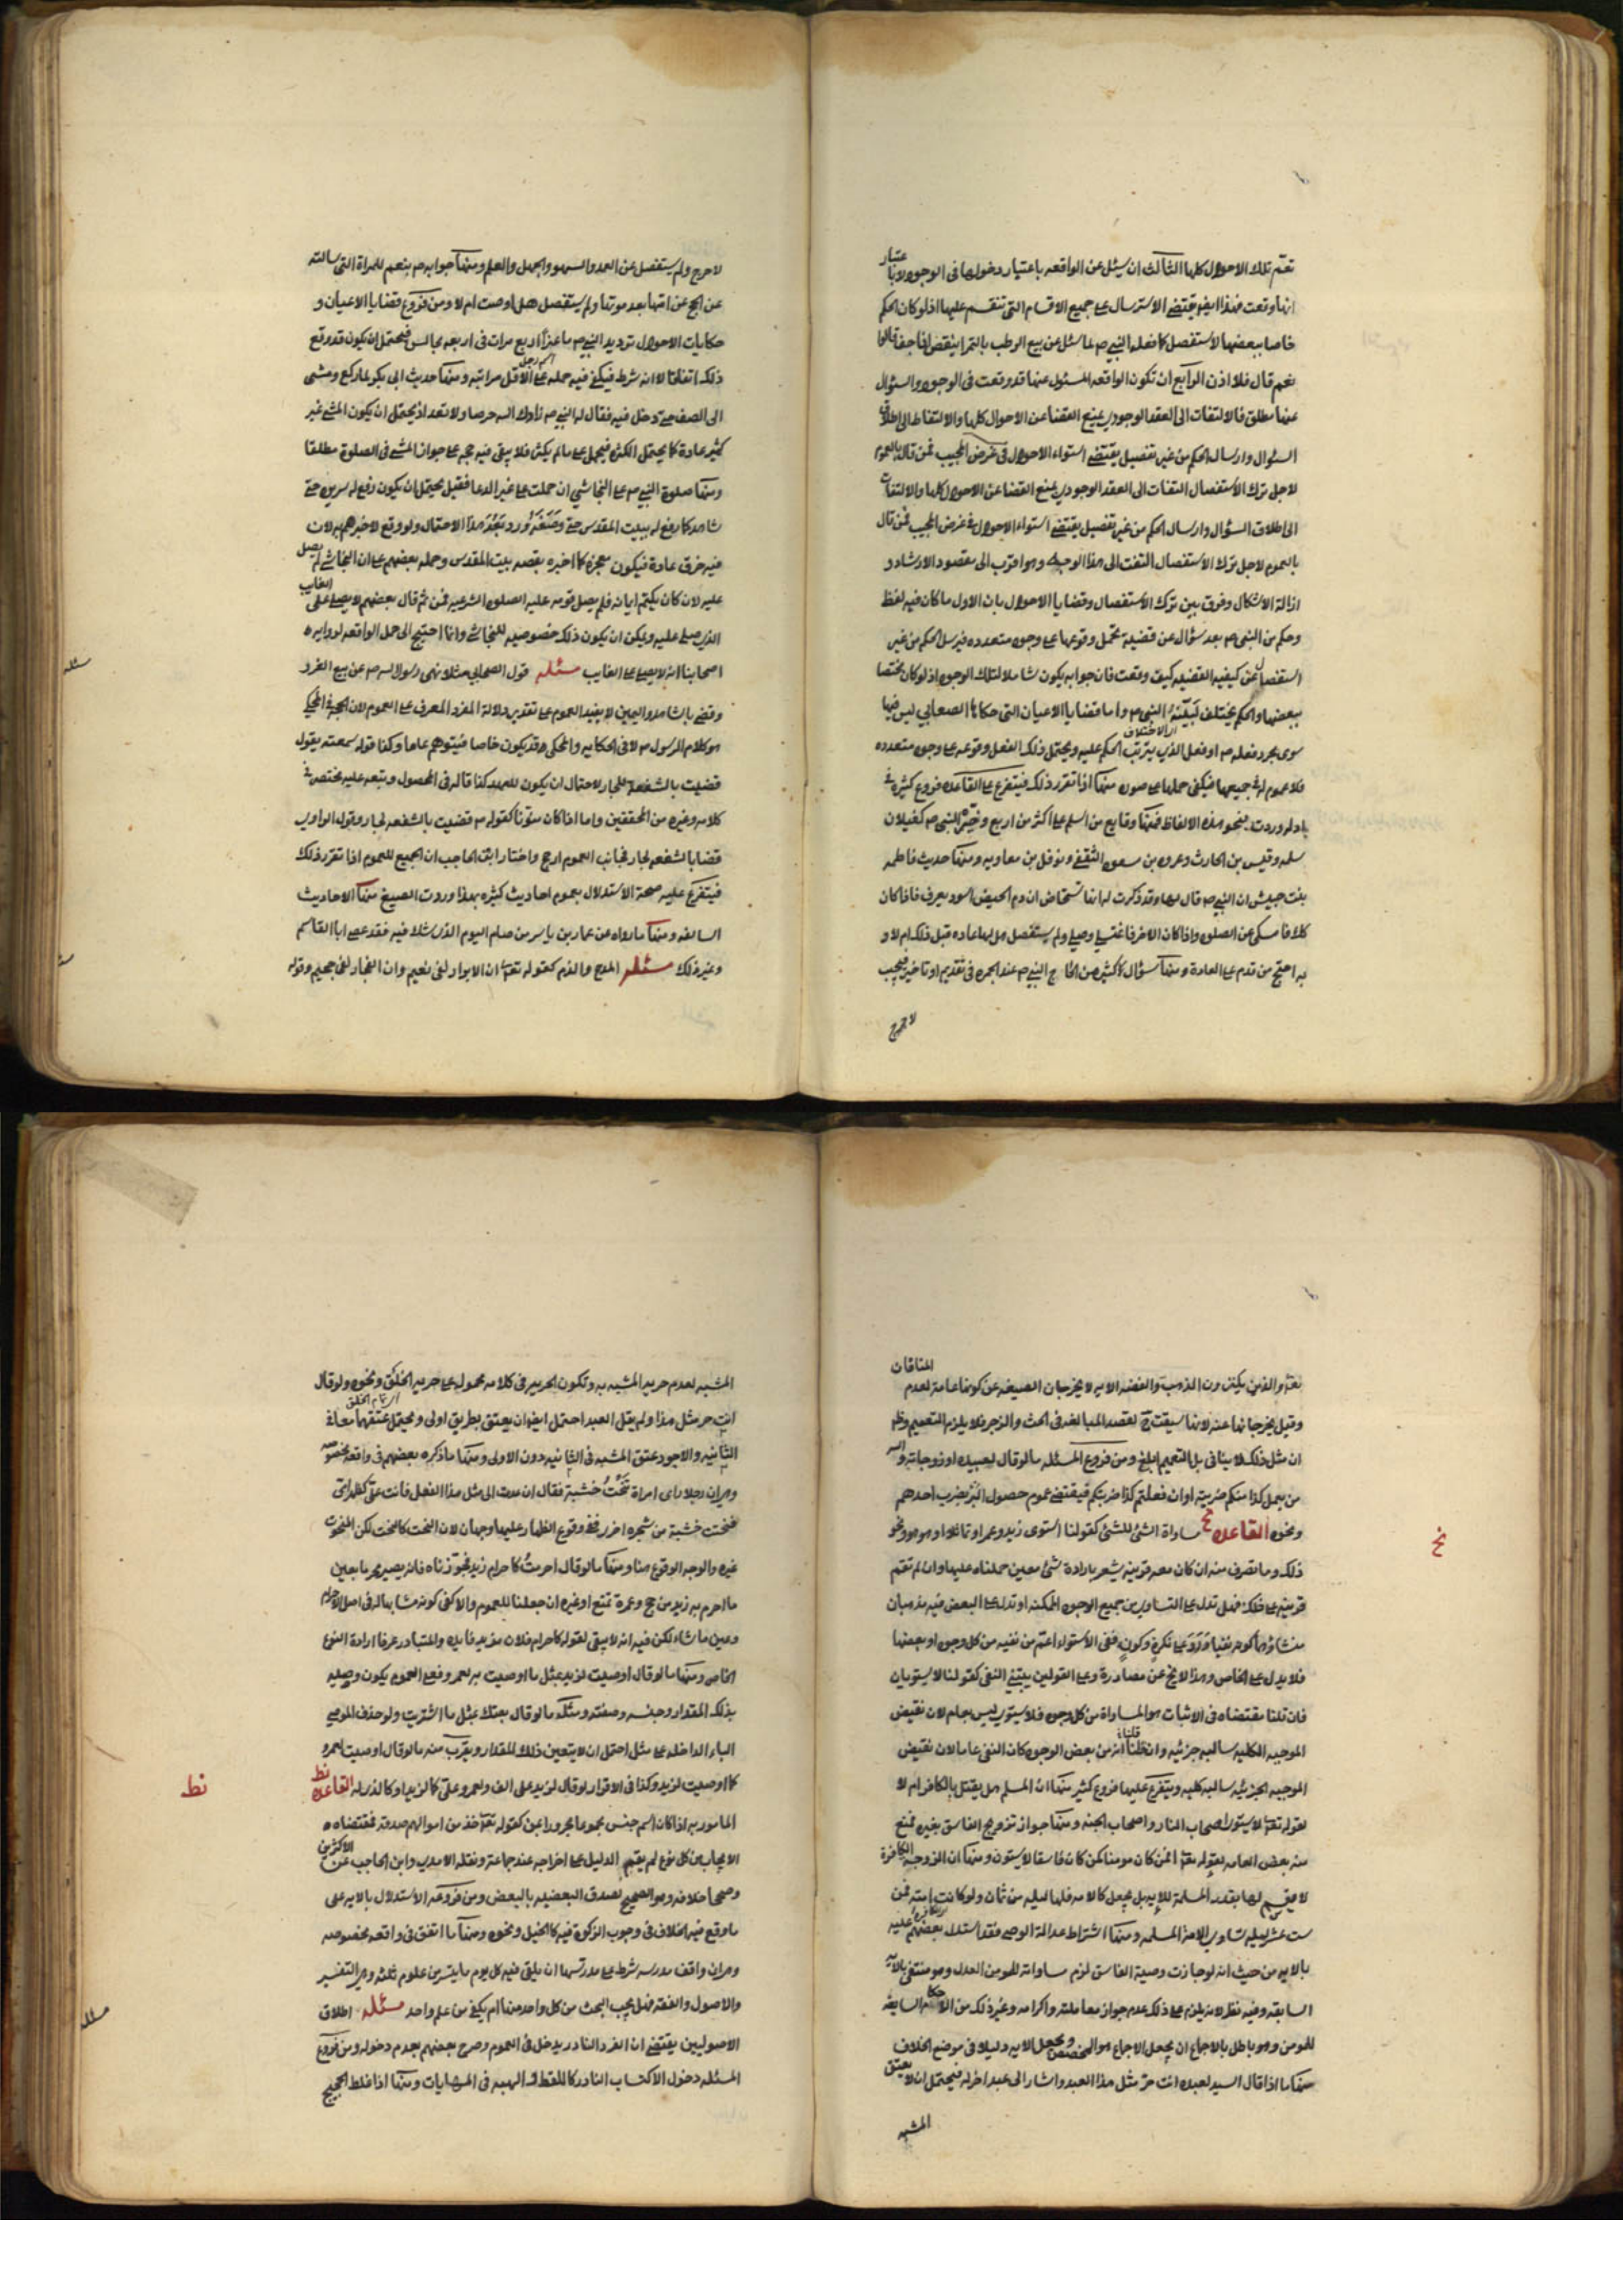 تعمّ تلك الاحوال كلها الثالث ان يسئل عن الواقعه باعتبار دخولها فى الوجود لا باعتبار
انها وقعت فهذا ايضا يقتضى الاسترسال على جميع الاقسام التى تنقسم عليها اذ لو كان الحكم
خاصا ببعضها لاستفصل كما فعله النبى ص لما سئل عن بيع الرطب بالتمر اينقص اذا جف قالوا
نعم قال فلا اذن الرابع ان تكون الواقعه المسئول عنها قد وقعت فى الوجود والسؤال
عنها مطلق فالالتفات الى العقد الوجودى يمنع القضا عن الاحوال كلها والالتفات الى اطلاق
السؤال وارسال الحكم من غير تفصيل يقتضى استواء الاحوال فى غرض المجيب فمن قال بالعموم
لاجل ترك الاستفصال التفات الى العقد الوجودى يمنع القضا عن الاحوال كلها والالتفات
الى اطلاق السؤال وارسال الحكم من غير تفصيل يقتضى استواء الاحوال فى غرض المجيب فمن قال
بالعموم لاجل ترك الاستفصال التفت الى هذا الوجه وهو اقرب الى مقصود الارشاد و
ازالة الاشكال وفرق بين ترك الاستفصال وقضايا الاحوال بان الاول ما كان فيه لفظ
وحكم من النبى ص بعد سؤال عن قضية تحتمل وقوعها على وجوه متعدده فيرسل الحكم من غير
استفصال عن كيفيه القضيه كيف وقعت فان جوابه يكون شاملا لتلك الوجوه اذ لو كان مختصا
ببعضها والحكم يختلف لبيّنه النبى ص واما قضايا الاعيان التى حكاها الصحابي ليس فيها
سوى مجرد فعله ص او فعل الذى يترتب الحكم عليه ويحتمل ذلك الفعل وقوعه على وجوه متعدده
فلا عموم له فى جميعها فيكفى حملها على صورة منها اذا تقرر ذلك فيتفرع على القاعده فروع كثيره فى
بادله وردت بنحو هذه الالفاظ فمنها وقايع من اسلم على اكثر من اربع وخيّره النبى ص كغيلان
سلمه وقيس بن الحارث وعروه بن مسعود الثقفى ونوفل بن معاويه ومنها حديث فاطمه
بنت حبيش ان النبى ص قال لها وقد ذكرت له انها تستحاض ان دم الحيض اسود يعرف فاذا كان
كذلك فامسكى عن الصلوه واذا كان الاخر فاغتسلى وصلى ولم يستفصل هل لها عاده قبل ذلك ام لا و
به احتج من قدم على العادة ومنها سؤال كثير من الحاج النبى ص عند الجمره فى تقديم او تاخير فيجيب
لا حرج
لا حرج ولم يستفصل عن العمد والسهو والجهل والعلم ومنها جوابه ص بنعم للمراة التى سالته
عن الحج عن امها بعد موتها ولم يستفصل هل اوصت ام لا ومن فروع قضايا الاعيان و
حكايات الاحوال ترديد النبى ص ماعزا اربع مرات فى اربعه مجالس فيحتمل ان يكون قد وقع
ذلك اتفاقا لا انه شرط فيكفى فيه حمله على الاقل مراتبه ومنها حديث ابى بكره لما ركع ومشى
الى الصف حتى دخل فيه فقال له النبى ص زادك الله حرصا ولا تعد اذ يحتمل ان يكون المشى غير
كثير عادة كما يحتمل الكثره فيحمل على ما لم يكثر فلا يبقى فيه حجه على جواز المشى فى الصلوة مطلقا
ومنها صلوة النبى ص على النجاشي ان حملت على غير الدعا فقيل يحتمل ان يكون رفع له سريره حتى
شاهده كما رفع له بيت المقدس حتى وصفه ورد ببعد هذا الاحتمال ولو وقع لاخبرهم به لان
فيه خرق عادة فيكون معجزة كما اخبره بقصه بيت المقدس وحمله بعضهم على ان النجاشى لم يصل
عليه لان كان يكتم ايمانه فلم يصل قومه عليه الصلوه الشرعيه فمن ثم قال بعضهم لا يصلى على الغايب
الذى صلى عليه ويمكن ان يكون ذلك خصوصيه للنجاشى وانما احتيج الى حمل الواقعه لورود
اصحابنا انه لا يصلى على الغايب مسئله قول الصحابي مثلا نهى رسول الله ص عن بيع الغرر
وقضى بالشاهد واليمين لا يفيد العموم على تقدير دلالة المفرد المعرف على العموم لان الحجة فى المحكى
هو كلام الرسول ص لا فى الحكايه والمحكى قد يكون خاصا فيتوهم عاما وكذا قوله سمعته يقول
قضيت بالشفعة للجار لاحتمال ان يكون للعهد كذا قاله فى المحصول وتبعه عليه مختصرى
كلامه وغيره من المحققين واما اذا كان منونا كقوله ص قضيت بالشفعه لجار وقول الراوى
قضا بالشفعه لجار فجانب العموم ارجح واختار ابن الحاجب ان الجميع للعموم اذا تقرر ذلك
فيتفرع عليه صحة الاستدلال بعموم احاديث كثيره بهذا وردت الصيغ منها الاحاديث
السابقه ومنها ما رواه عن عمار بن ياسر من صام اليوم الذى شك فيه فقد عصى ابا القاسم
وغير ذلك مسئله المدح والذم كقوله تعالى ان الابرار لفى نعيم وان الفجار لفى جحيم وقوله
مسئله
تعالى والذين يكنزون الذهب والفضه الايه لا يخرجان الصيغه عن كونها عامة لعدم المنافات
وقيل يخرجانها عنه لانها سيقت لقصد المبالغه فى الحث والزجر فلا يلزم التعميم وظ
ان مثل ذلك لا ينافى بل التعميم ابلغ ومن فروع المسئله ما لو قال لعبيده او زوجاته والله
من يعمل كذا منكم ضربته او ان فعلتم كذا ضربتكم فيقتضى عموم حصول البر بضرب احدهم
ونحوه القاعده نح مساواة الشئ للشئ كقولنا استوى زيد وعمرو او تماثلا او هو هو ونحو
ذلك وما تصرف منه ان كان معه قرينه يشعر بارادة شئ معين حملناه عليها وان لم تقم
قرينه على ذلك فهل تدل على التساوى من جميع الوجوه الممكنه او تدل على البعض فيه مذهبان
فلا يدل على الخاص وهذا لا يخ عن مصادرة وعلى القولين يبتنى النفى كقولنا لا يستويان
فان قلنا مقتضاه فى الاثبات هو المساواة من كل وجه فلا يستوى ليس بعام لان نقيض
الموجبه الكليه سالبه جزئيه وان قلنا انه من بعض الوجوه كان النفى عاما لان نقيض
الموجبه الجزئيه سالبه كليه ويتفرع عليها فروع كثير منها ان المسلم هل يقتل بالكافر ام لا
لقوله تعالى لا يستوى اصحاب النار واصحاب الجنه ومنها جواز تزويج الفاسق بغيره فمنع
منه بعض العامه لقوله تعالى افمن كان مومنا كمن كان فاسقا لا يستون ومنها ان الزوجه الكافرة
لا يقسم لها بقدر المسلمة للايه بل يجعل كالامه فلها ليله من ثمان ولو كانت امته فمن
ست عشر ليله تساوى الامة المسلمه ومنها اشتراط عدالة الوصى فقد استدل بعضهم عليه
بالايه من حيث انه لو جازت وصية الفاسق لزم مساواته للمومن العدل وهو منتفى بالايه
السابقه وفيه نظر لانه يلزم على ذلك عدم جواز معاملته واكرامه وغير ذلك من الاحكام السابغه
للمومن وهو باطل بالاجماع ان يجعل الاجماع هو المخصص ويجعل الايه دليلا فى موضع الخلاف
منها ما اذا قال السيد لعبده انت حر مثل هذا العبد واشار الى عبد اخر له فيحتمل ان لا يعتق
المشبه
نح
المشبه لعدم حرية المشبه به وتكون الحرية فى كلامه محمولة على حرية الخلق ونحوه ولو قال
انت حر مثل هذا ولم يقل العبد احتمل ايضا ان يعتق بطريق اولى ويحتمل عتقهما معا فى
الثانيه والاجود عتق المشبه فى الثانيه دون الاولى ومنها ما ذكره بعضهم فى واقعه مخصوصه
وهى ان رجلا راى امراة تنحت خشبة فقال ان عدت الى مثل هذا الفعل فانت على كظهر امى
فنحتت خشبة من شجره اخرى ففى وقوع الظهار عليها وجهان لان النحت كالنحت لكن المنحوت
غيره والوجه الوقوع هنا ومنها ما لو قال احرمت كاحرام زيد فجوزناه فانه يصير محرما بعين
ما احرم به زيد من حج وعمرة تمتع او غيره ان جعلنا للعموم والا كفى كونه مشابها له فى اصل الاحرام
وعين ما شاء لكن فيه انه لا يبقى لقوله كاحرام فلان مزيد فايده والمتبادر عرفا ارادة النوع
الخاص ومنها ما لو قال اوصيت لزيد بمثل ما اوصيت به لعمرو فمع العموم يكون وصيه
بذلك المقدار وجنسه وصفته ومثله ما لو قال بعتك بمثل ما اشتريت ولو حذف الموصى
الباء الداخله على مثل احتمل ان لا يتعين ذلك المقدار ويقرب منه ما لو قال اوصيت لعمرو
كما اوصيت لزيد وكذا فى الاقرار لو قال لزيد على الف ولعمرو على كالزيد او كالذى له القاعده نط
المامور به اذا كان اسم جنس مجموعا مجرورا بمن كقوله تعالى خذ من اموالهم صدقة فمقتضاه
الايجاب من كل نوع لم يقم الدليل على اخراجه عند جماعة ونقله الامدى وابن الحاجب عن الاكثرين
وصححا خلافه وهو الصحيح لصدق البعضيه بالبعض ومن فروعه الاستدلال بالايه على
ما وقع فيه الخلاف فى وجوب الزكوة فيه كالخيل ونحوه ومنها ما اتفق فى واقعه مخصوصه
وهى ان واقف مدرسه شرط على مدرسها ان يلقى فيه كل يوم ما يتيسر من علوم ثلثه وهى التفسير
والاصول والفقه فهل يجب البحث من كل واحد منها ام يكفى من علم واحد مسئله اطلاق
الاصوليين يقتضى ان الفرد النادر يدخل فى العموم وصرح بعضهم بعدم دخوله ومن فروع
المسئله دخول الاكتساب النادر كاللقطة والهبه فى المهايات ومنها اذا غلط الحجيج
نط
مسئله